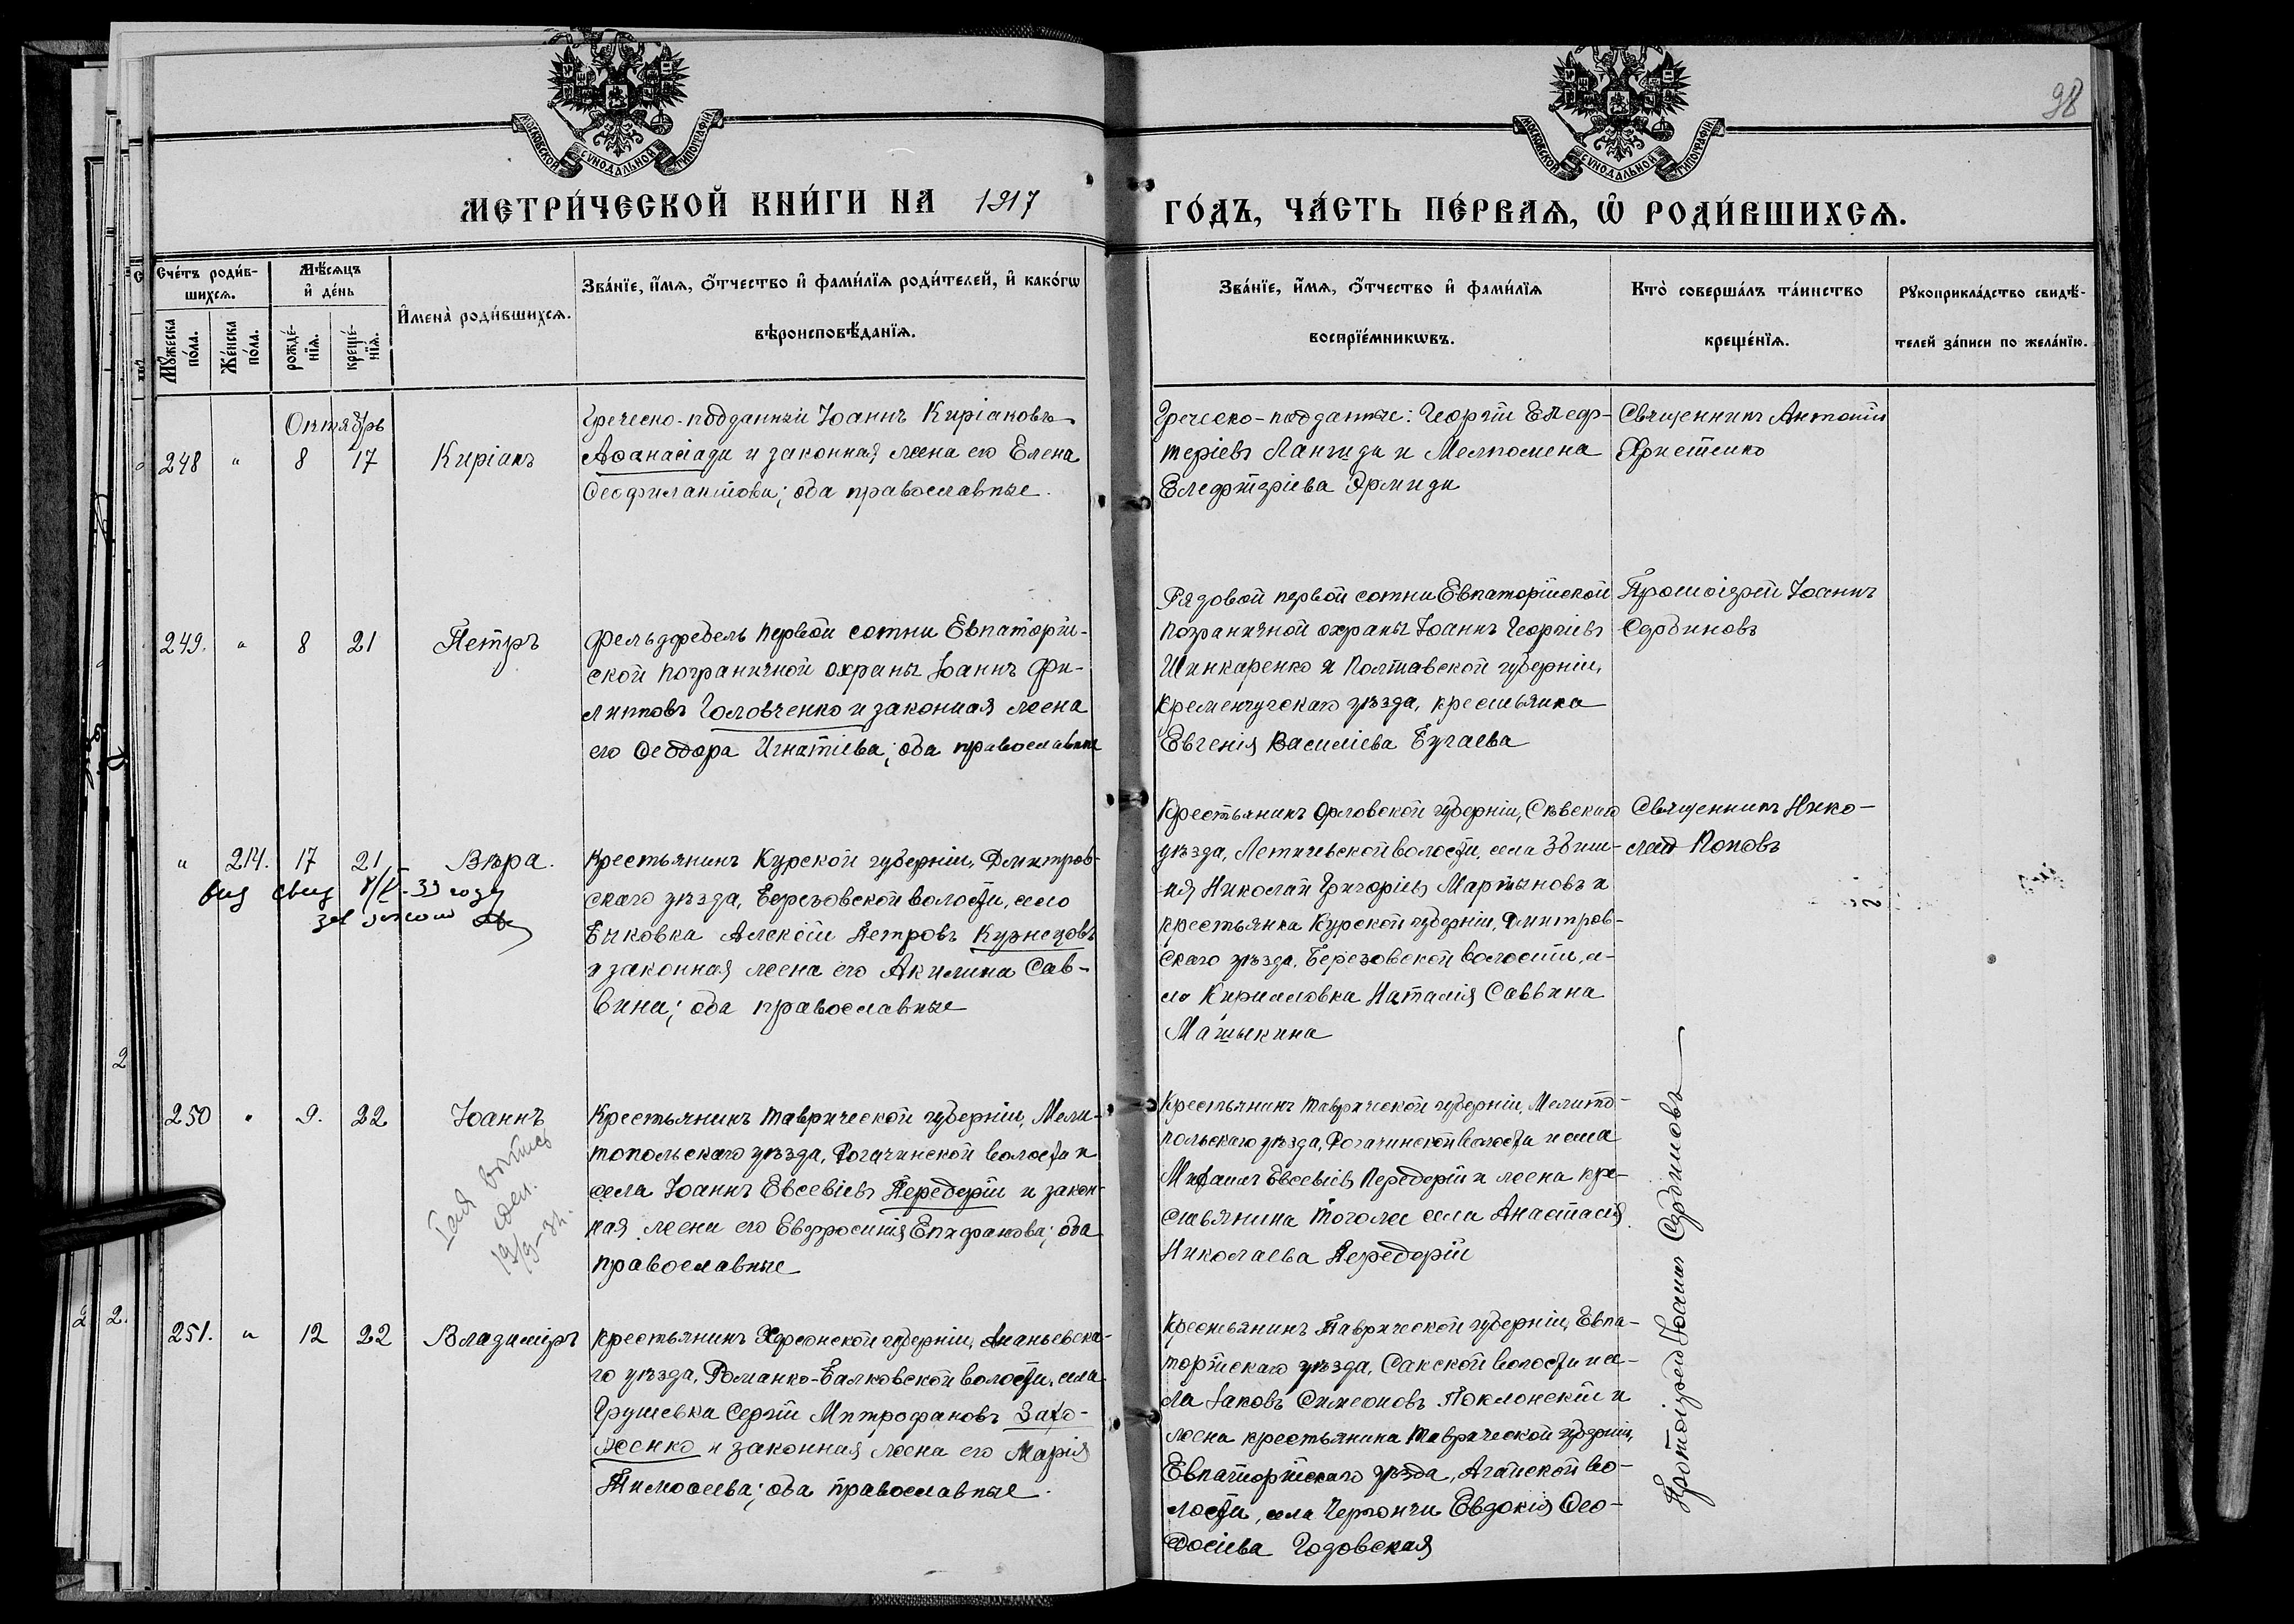 98
МОСКОВСКОЙ СѴНОДАЛЬНОЙ ТИПОГРАФІИ
МОСКОВСКОЙ СѴНОДАЛЬНОЙ ТИПОГРАФІИ
МЕТРИ́ЧЕСКОЙ КНИ́ГИ НА 1917 ГО́ДЪ, ЧА́СТЬ ПЕ́РВАѦ, Ѡ РОДИ́ВШИХСѦ.
Сче́тъ роди́в-
шихсѧ.
Мꙋ́жеска по́ла.
Же́нска по́ла.
Мѣ́сѧцъ
и де́нь
рожде́-
нїѧ.
креще́-
нїѧ.
И҆мена̀ роди́вшихсѧ.
Зва́нїе, и҆́мѧ, ѻ҆́тчество и҆ фами́лїѧ роди́телей, и҆ како́гѡ
вѣроисповѣ́данїѧ.
Зва́нїе, и҆́мѧ, ѻ҆́тчество и҆ фами́лїѧ
воспрїе́мникѡвъ.
Кто̀ соверша́лъ та́инство
креще́нїѧ.
Рꙋкоприкла́дство свидѣ́-
телей за́писи по жела́нїю.
Октябрь
248 " 8 17 Киріакъ
Греческо-подданный Іоаннъ Киріаковъ
Аѳанасіади и законная жена его Елена
Ѳеофилактова; оба православные.
Греческо-подданные: Георгій Елеф-
теріевъ Лангиди и Мелпомена
Елефтеріева Эрмиди
Священникъ Антоній
Христенко
249. " 8 21 Петръ
Фельдфебель первой сотни Евпаторій-
ской пограничной охраны Іоаннъ Фи-
липповъ Головченко и законная жена
его Ѳеодора Игнатіева; оба православные
Рядовой первой сотни Евпаторійской
пограничной охраны Іоаннъ Георгіевъ
Шинкаренко и Полтавской губерніи,
Кременчугскаго уѣзда, крестьянка
Евгенія Василіева Бугаева
Протоіерей Іоаннъ
Сербиновъ
" 214. 17 21 Вѣра.
33 году
Крестьянинъ Курской губерніи, Дмитров-
скаго уѣзда, Березовской волости, село
Бычковка Алексій Петровъ Кузнецовъ
и законная жена его Акилина Сав-
вина; оба православные
Крестьянинъ Орловской губерніи, Сѣвскаго
уѣзда, Летичевской волости, села
Николай Григоріевъ Мартыновъ и
крестьянка Курской губерніи, Дмитров-
скаго уѣзда, Березовской волости, се-
ла Кирилловка Наталія Саввина
Машыкина
Священникъ Нико-
лай Поповъ
250 " 9. 22 Іоаннъ
19/9-34.
Крестьянинъ Таврической губерніи, Мели-
топольскаго уѣзда, Рогачинской волости и
села Іоаннъ Евсевіевъ Передерій и закон-
ная жена его Евфросинія Епифанова; оба
православные
Крестьянинъ Таврической губерніи, Мелито-
польскаго уѣзда, Рогачинской волости и села
Михаилъ Евсевіевъ Передерій и жена кре-
стьянина тогоже села Анастасія
Николаева Передерій
Протоіерей Іоаннъ Сербиновъ
251. " 12 22 Владиміръ
Крестьянинъ Херсонской губерніи, Ананьевска-
го уѣзда, Романко-Балковской волости, села
Грушевка Сергій Митрофановъ Захо-
женко и законная жена его Марія
Тимоѳеева; оба православные.
Крестьянинъ Таврической губерніи, Евпа-
торійскаго уѣзда, Сакской волости и се-
ла Іаковъ Симеоновъ Поклонскій и
жена крестьянина Таврической губерніи,
Евпаторійскаго уѣзда, Агайской во-
лости, села Евдокія Ѳео-
досіева Годовская